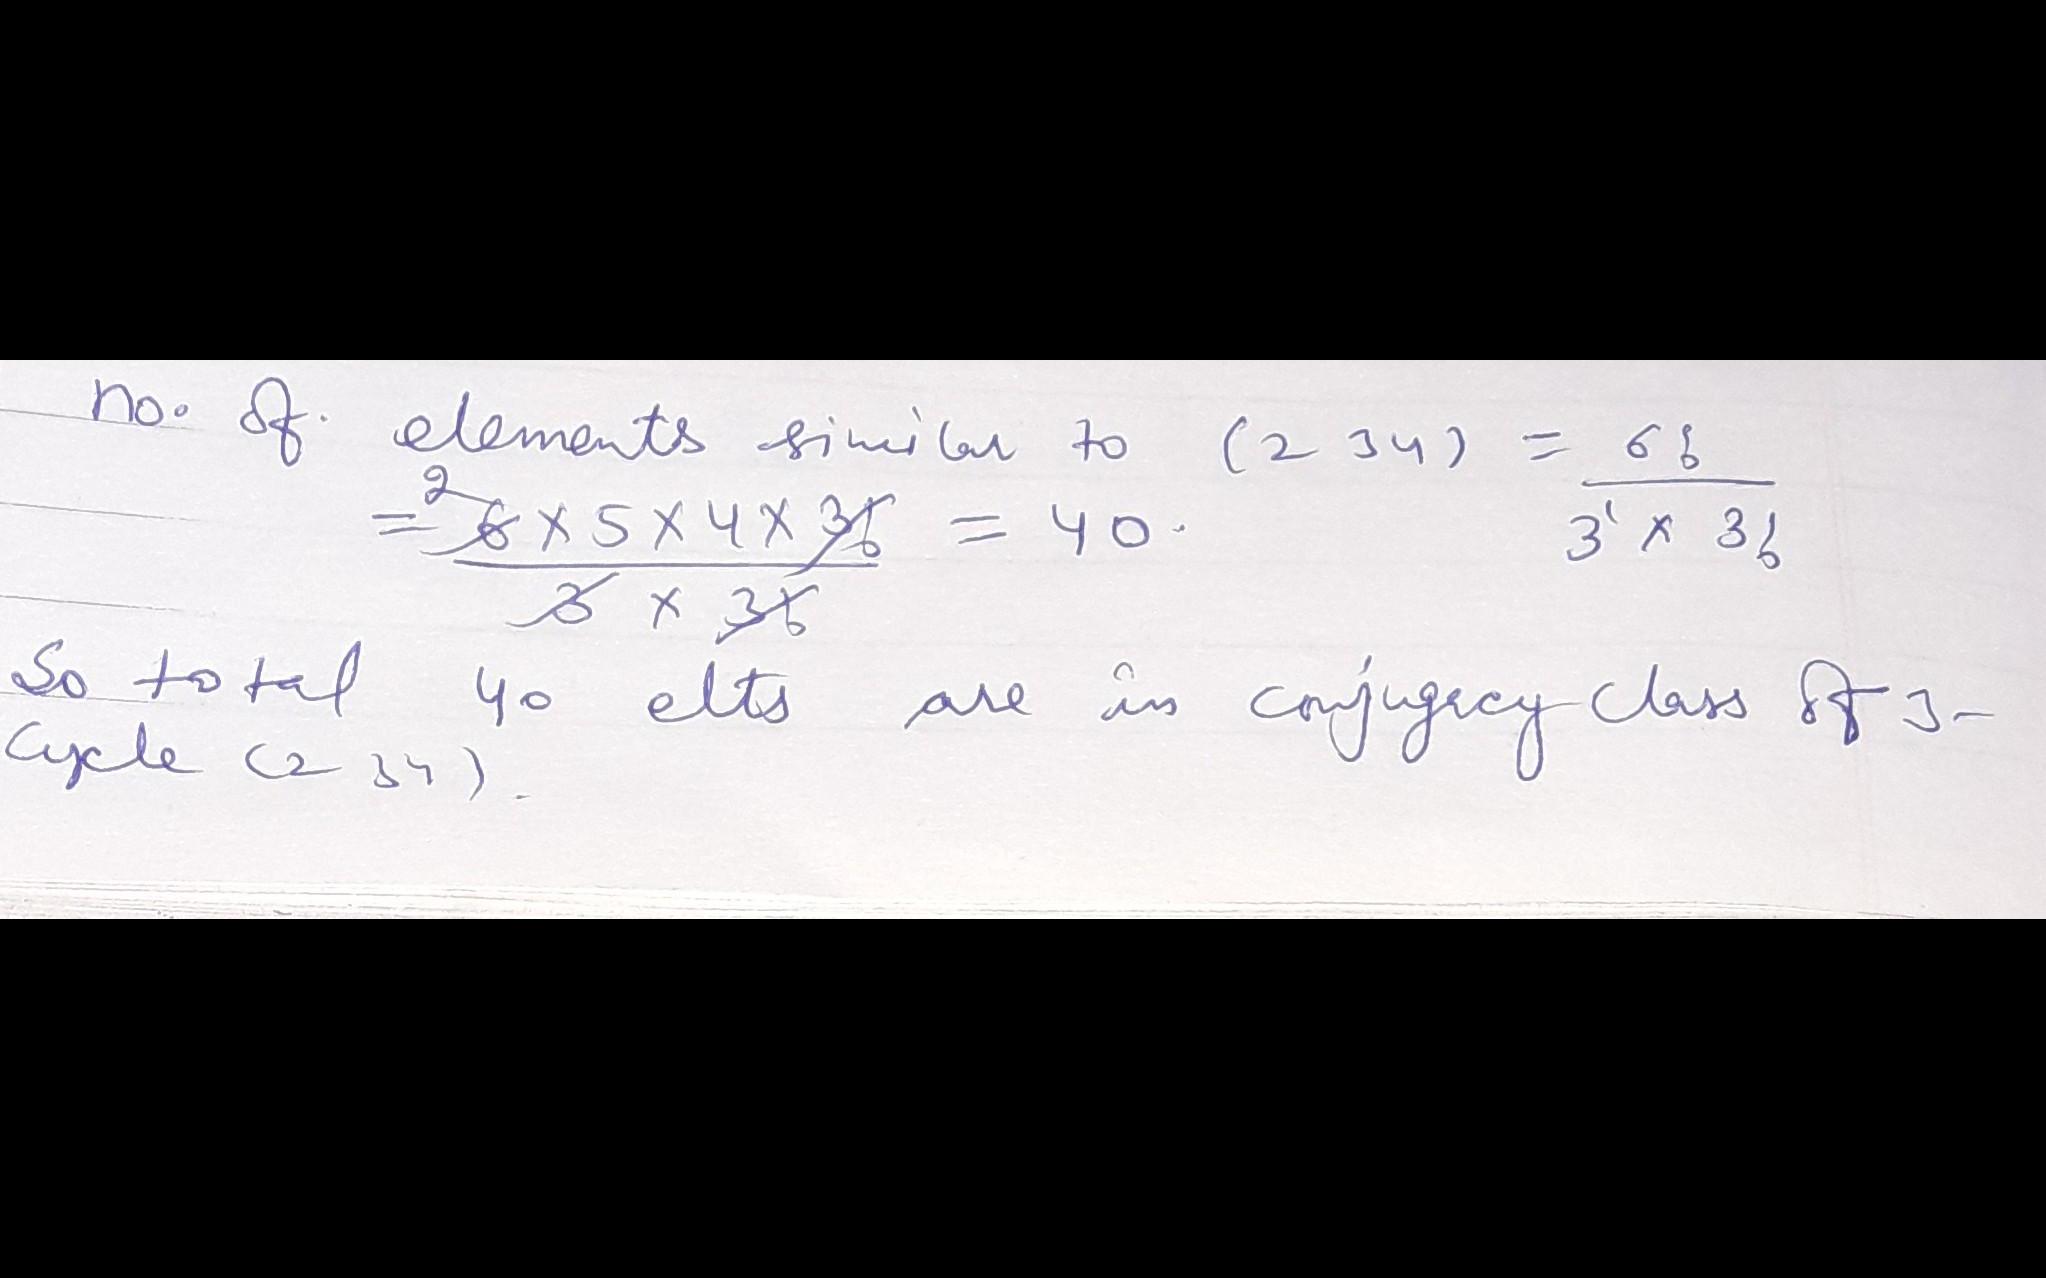 no. of. elements similar to (2 3 4) = 6! / 3¹ × 3!
= ²6 × 5 × 4 × 3! / 3 × 3! = 40.
So total 40 elts are in conjugacy class of 3-
Cycle (2 3 4).